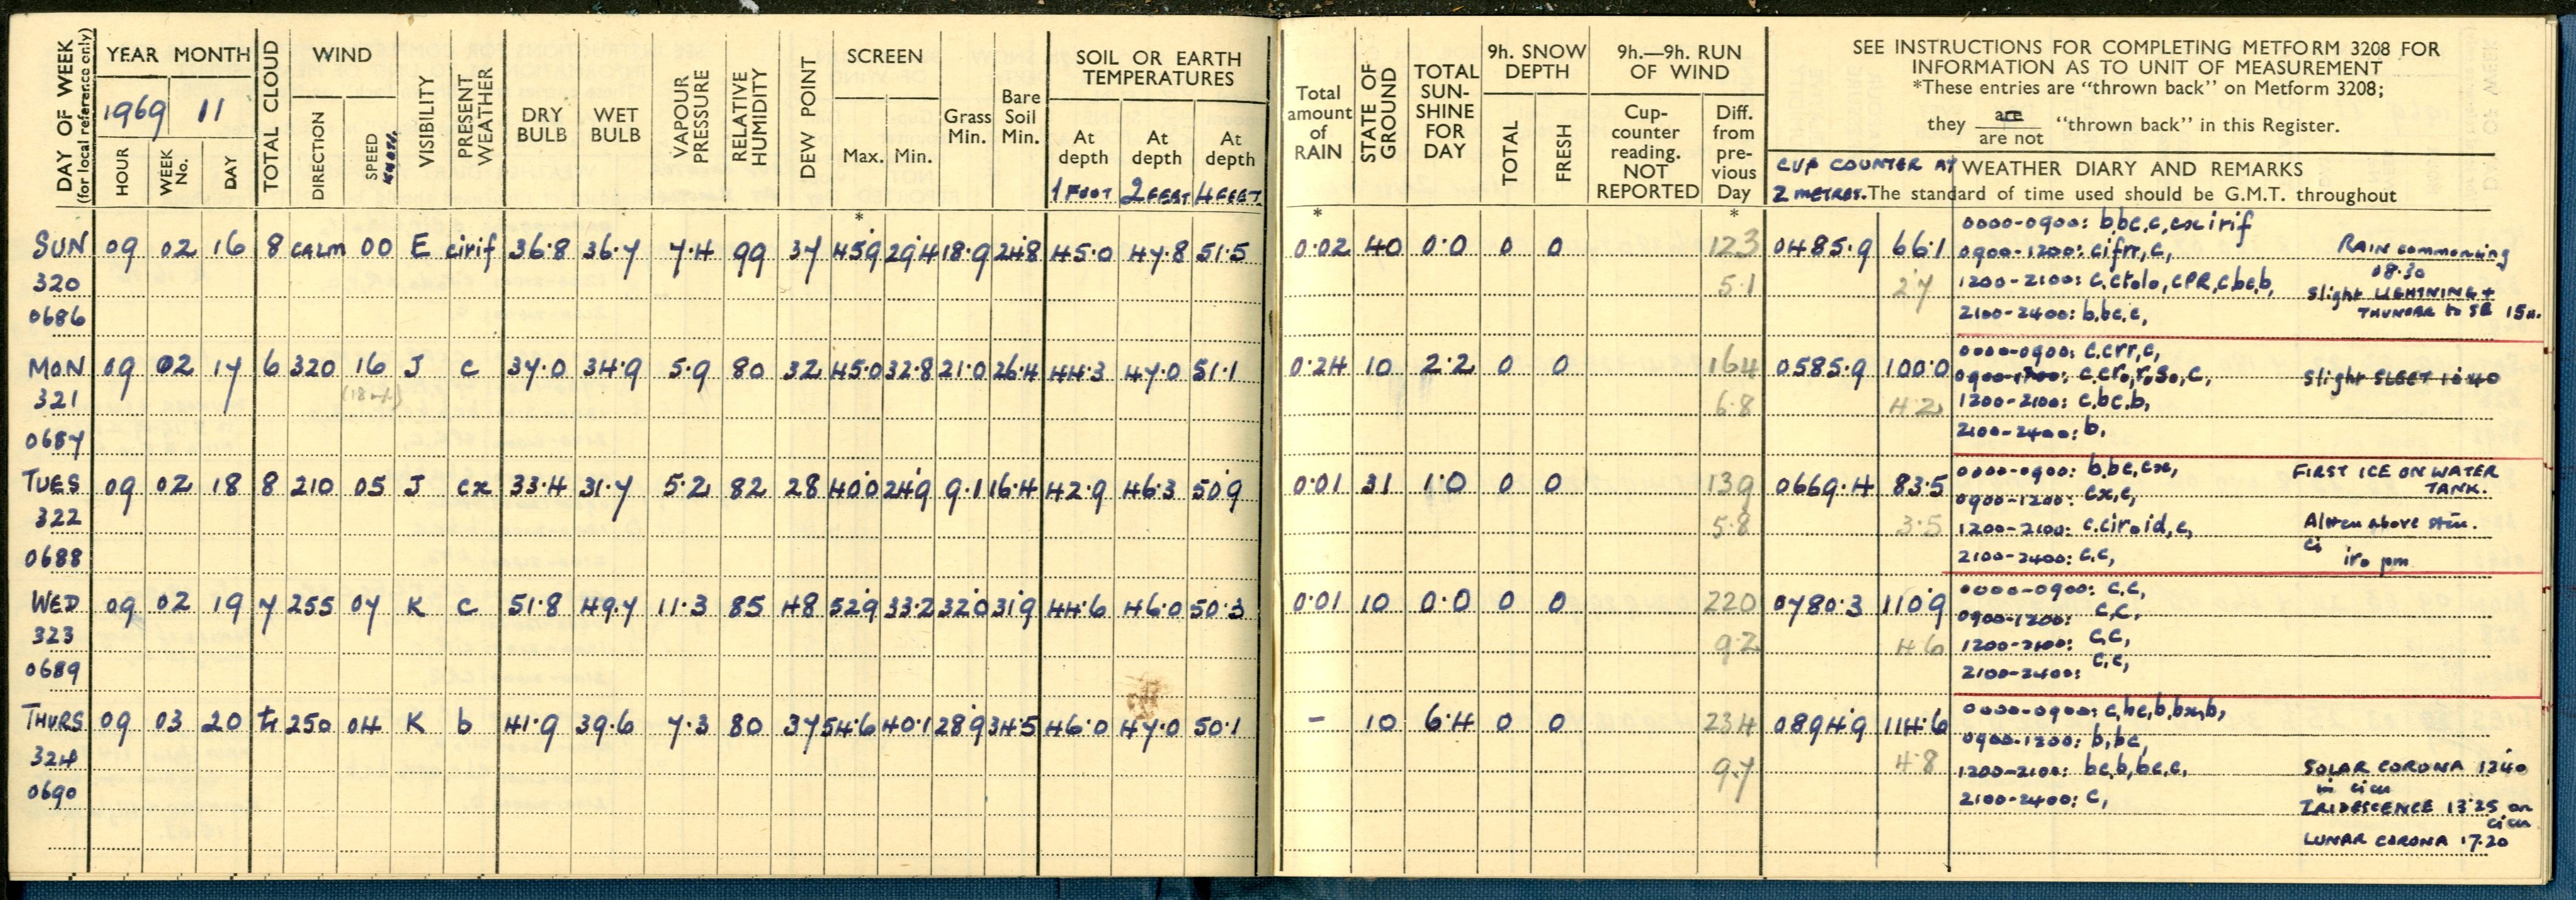 DAY OF WEEK (for local reference only)
YEAR MONTH
1969 11
HOUR WEEK No. DAY
TOTAL CLOUD
WIND
DIRECTION SPEED
VISIBILITY
PRESENT WEATHER
DRY BULB
WET BULB
VAPOUR PRESSURE
RELATIVE HUMIDITY
DEW POINT
SCREEN
Max. Min.
Grass Min.
Bare Soil Min.
SOIL OR EARTH TEMPERATURES
At depth At depth At depth
1 FOOT 2 FEET 4 FEET
Total amount of RAIN
STATE OF GROUND
TOTAL SUN- SHINE FOR DAY
9h. SNOW DEPTH
TOTAL FRESH
9h.—9h. RUN OF WIND
Cup- counter reading. NOT REPORTED
Diff. from pre- vious Day
SEE INSTRUCTIONS FOR COMPLETING METFORM 3208 FOR
INFORMATION AS TO UNIT OF MEASUREMENT
*These entries are "thrown back" on Metform 3208;
they are / are not "thrown back" in this Register.
CUP COUNTER AT 2 METRES.
WEATHER DIARY AND REMARKS
The standard of time used should be G.M.T. throughout
* * *
SUN 09 02 16 8 CALM 00 E cirif 36.8 36.7 7.4 99 37 45.9 29.4 18.9 24.8 45.0 47.8 51.5 0.02 40 0.0 0 0 123 0485.9 66.1
320 5.1 2.7
0686
0000-0900: b,bc,c,cx irif
0900-1200: cifrr, c,
1200-2100: c, ctolo, cPR, c bc, b,
2100-2400: b,bc,c,
RAIN commencing
08.30
Slight LIGHTNING +
THUNDER to SE 15
MON 09 02 17 6 320 16 J c 37.0 34.9 5.9 80 32 45.0 32.8 21.0 26.4 44.3 47.0 51.1 0.24 10 2.2 0 0 164 0585.9 100.0
321 6.8 4.2
0687
0000-0900: c,crr,c,
0900-1200: c.cro,roso,c,
1200-2100: c,bc,b,
2100-2400: b,
Slight SLEET 1040
TUES 09 02 18 8 210 05 J cx 33.4 31.7 5.2 82 28 40.0 24.9 9.1 16.4 42.9 46.3 50.9 0.01 31 1.0 0 0 139 0669.4 83.5
322 5.8 3.5
0688
0000-0900: b,bc,cx,
0900-1200: cx,c,
1200-2100: c.ciroid,c,
2100-2400: c,c,
FIRST ICE ON WATER
TANK.
iro pm
WED 09 02 19 7 255 07 K c 51.8 49.7 11.3 85 48 52.9 33.2 32.0 31.9 44.6 46.0 50.3 0.01 10 0.0 0 0 220 0780.3 110.9
323 9.2 4.6
0689
0000-0900: c,c,
0900-1200: c,c,
1200-2100: c,c,
2100-2400: c,c,
THURS 09 03 20 tr 250 04 K b 41.9 39.6 7.3 80 37 54.6 40.1 28.9 34.5 46.0 47.0 50.1 - 10 6.4 0 0 234 0894.9 114.6
324 9.7 4.8
0690
0000-0900: c,bc,b,bx,b,
0900-1200: b,bc,
1200-2100: bc,b,bc,c,
2100-2400: c,
SOLAR CORONA 1340
in cicu
IRIDESCENCE 13.25 on
cicu
LUNAR CORONA 17.20